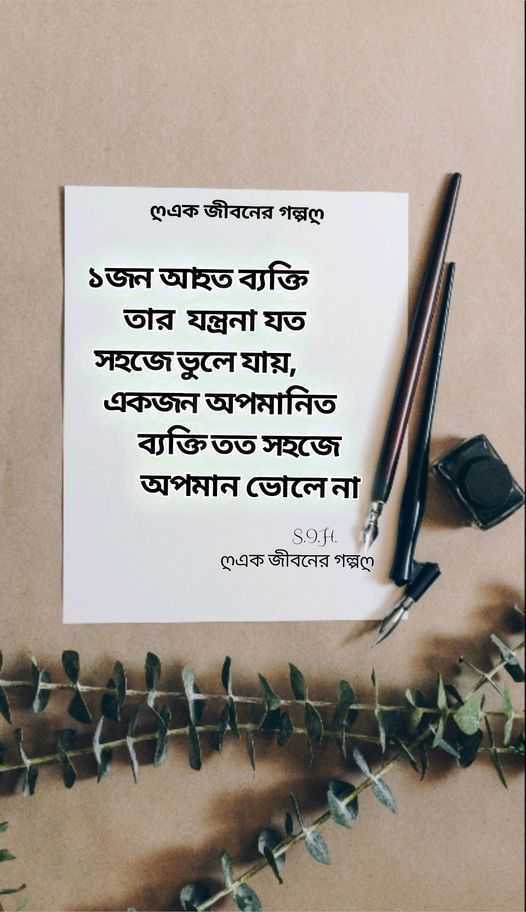 ღএক জীবনের গল্পღ
১জন আহত ব্যক্তি
তার যন্ত্রনা যত
সহজে ভুলে যায়,
একজন অপমানিত
ব্যক্তি তত সহজে
অপমান ভোলে না
S.I.H.
ღএক জীবনের গল্পღ